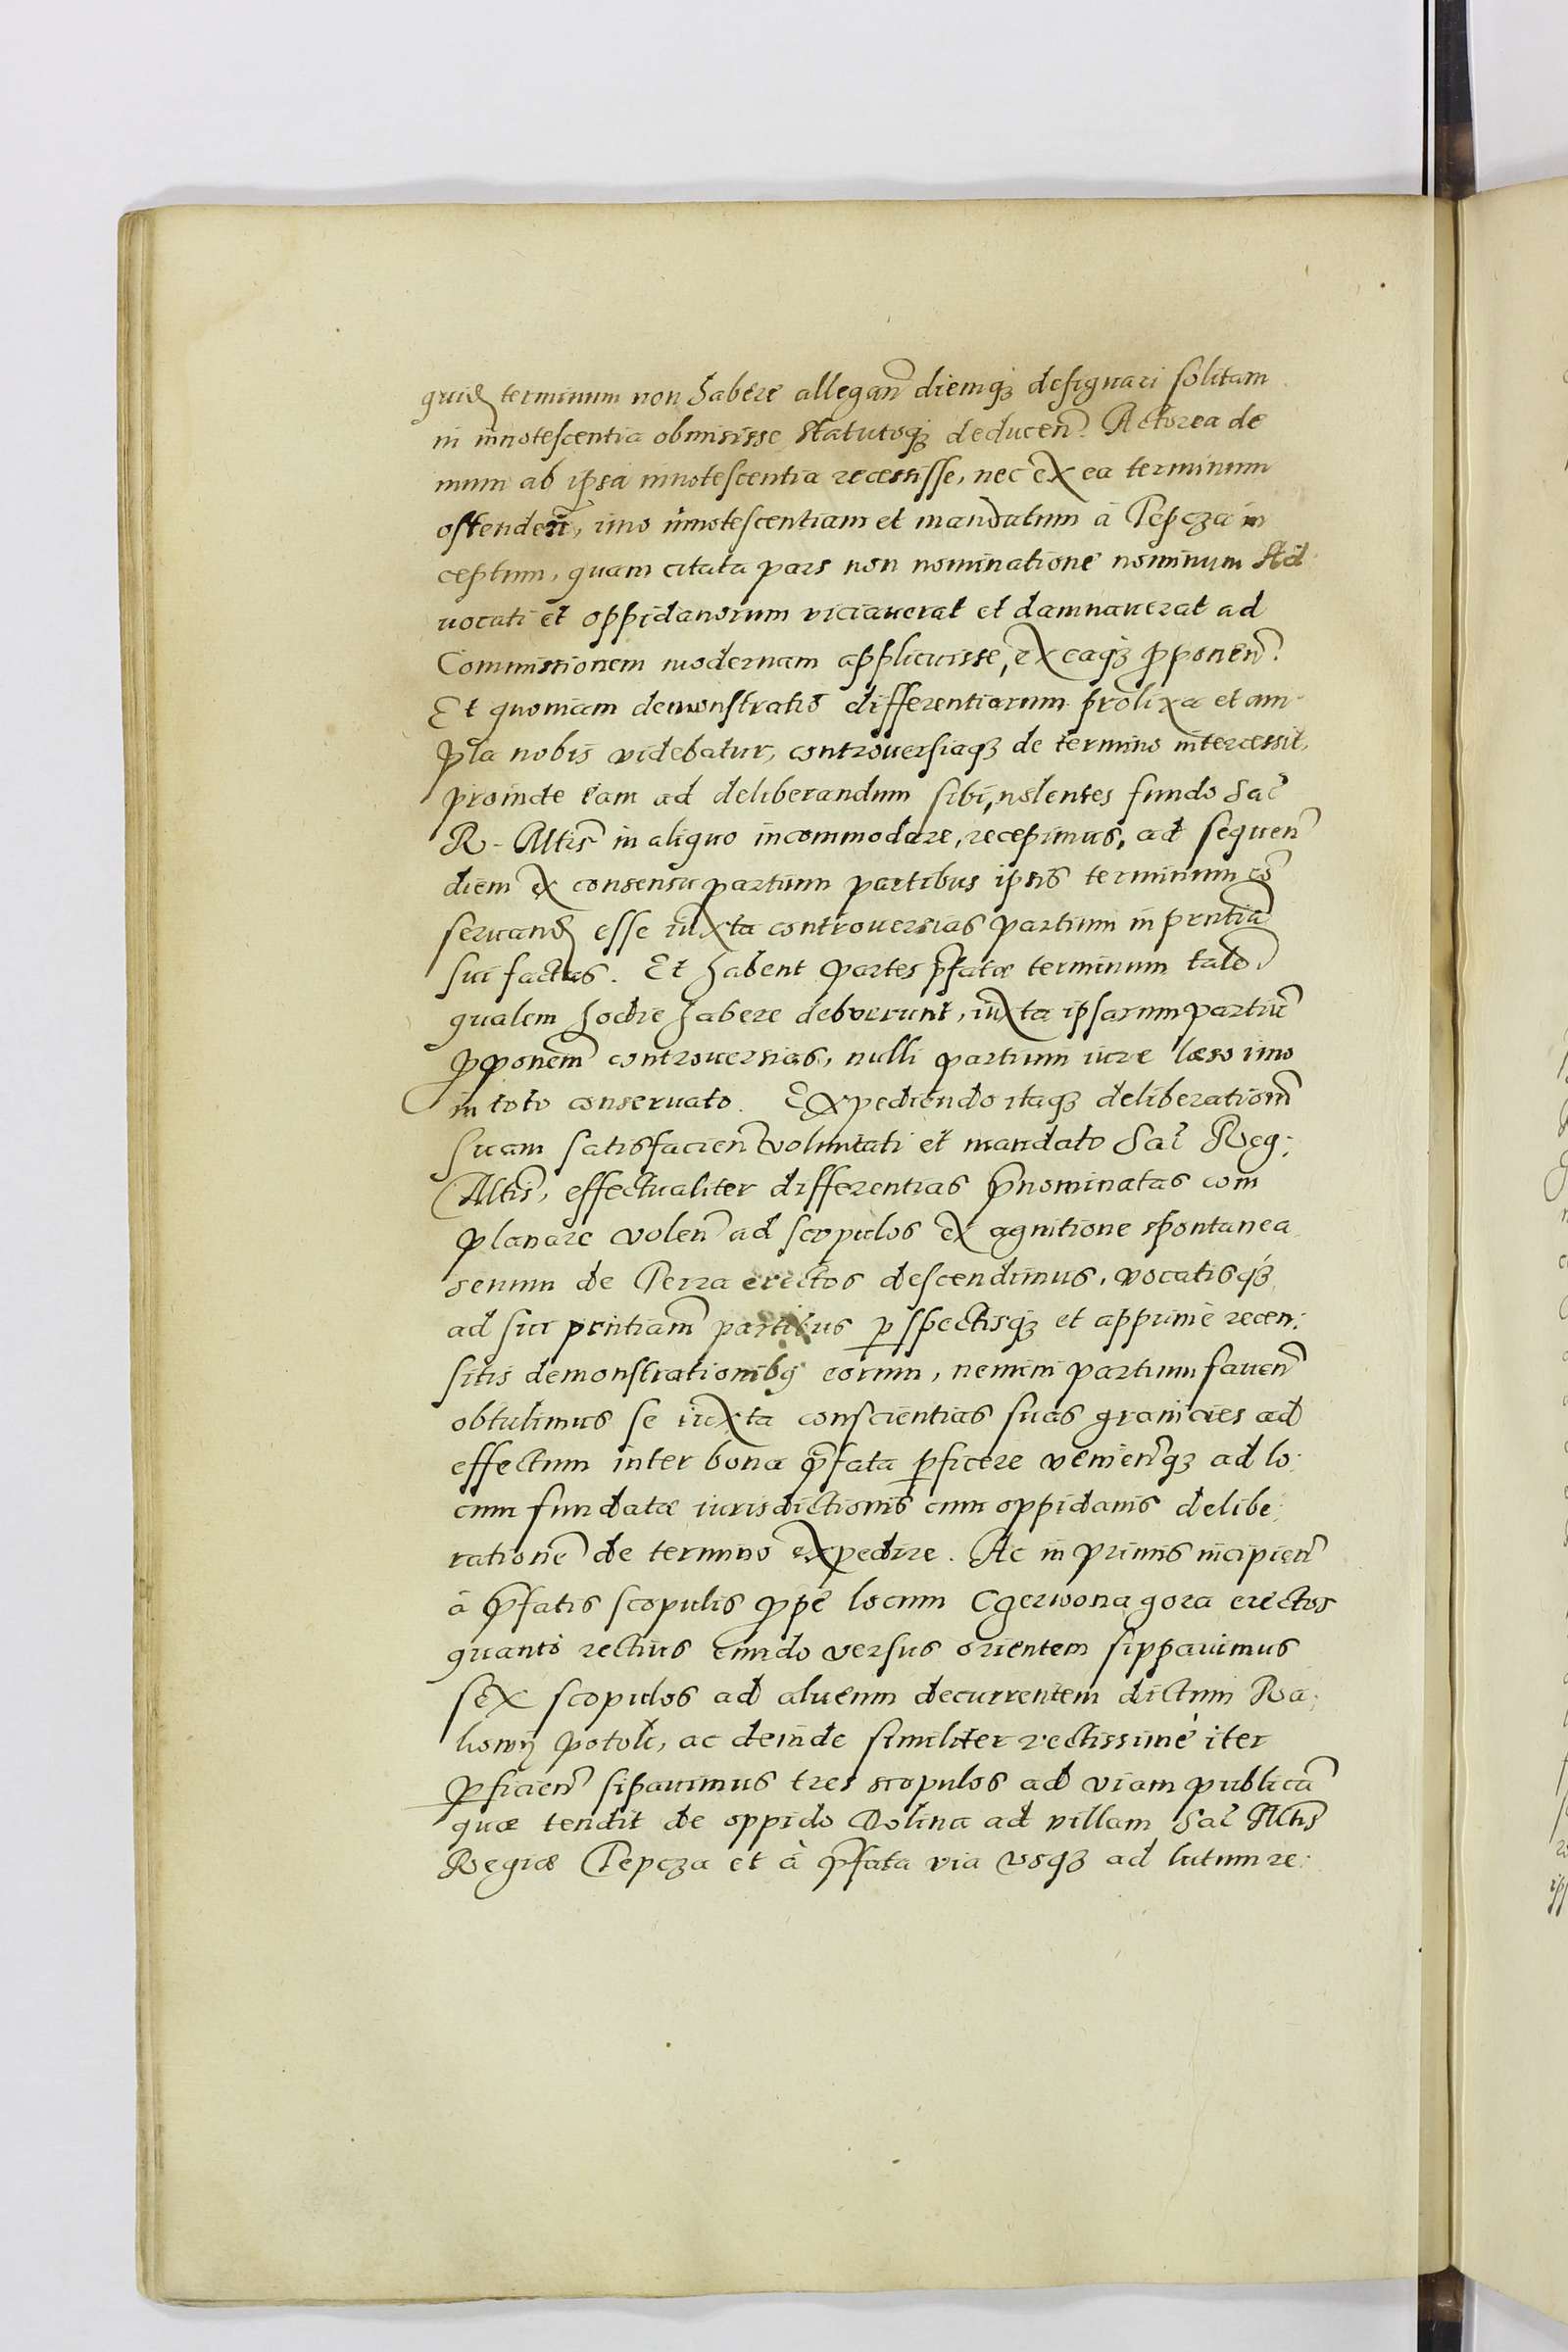 quid terminum non habere allegan diemq3 designari solitam
in innotescentia obmisisse statutoq3 deducen. Actorea de
mum ab ipsa innotescentia recessisse, nec ex ea terminum
ostenden, imo innotescentiam et mandatum à Tepcza in
ceptum, quam citata pars non nominatione nominum Ad
uocati et oppidanorum viciauerat et damnauerat ad
Commissionem modernam applicuisse, ex eaq3 pponen.
Et quoniam demonstratio differentiarum prolixa et am
pla nobis videbatur, controuersiaq3 de termino intercessit,
proinde eam ad deliberandum sibi, nolentes fundo Sac
R. Mtis in aliquo incommodare, recepimus, ad sequen
diem ex consensu partium partibus ipsis terminum co
seruand esse iuxta controuersias partium in prntia
sui factas. Et habent partes pfatæ terminum talem
qualem hodie habere debuerunt, iuxta ipsarum partiu
pponem controuersias, nulli partium iure læso imo
in toto conseruato. Expediendo itaq3 deliberationem
suam satisfacien voluntati et mandato Sac Reg:
Mtis, effectualiter differentias pnominatas com
planare volen ad scopulos ex agnitione spontanea
senum de Perra erectos descendimus, vocatisq3
ad sui prntiam partibus pspectisq3 et apprime recen:
sitis demonstrationibq eorum, nemini partium fauen
obtulimus se iuxta conscientias suas granicies ad
effectum inter bona pfata pficere venienq3 ad lo:
cum fundatæ iurisdictionis cum oppidanis delibe:
ratione de termino expedire. Ac in primis incipien
à pfatis scopulis ppe locum Czerwona gora erectos
quanto rectius eundo versus orientem sippauimus
sex scopulos ad alueum decurrentem dictum Ra:
kowy potok, ac deinde similiter rectissime iter
pficien sipauimus tres scopulos ad viam publica
quæ tendit de oppido Dolina ad villam Sac Mtis
Regiæ Tepcza et à pfata via vsq3 ad lutum re: